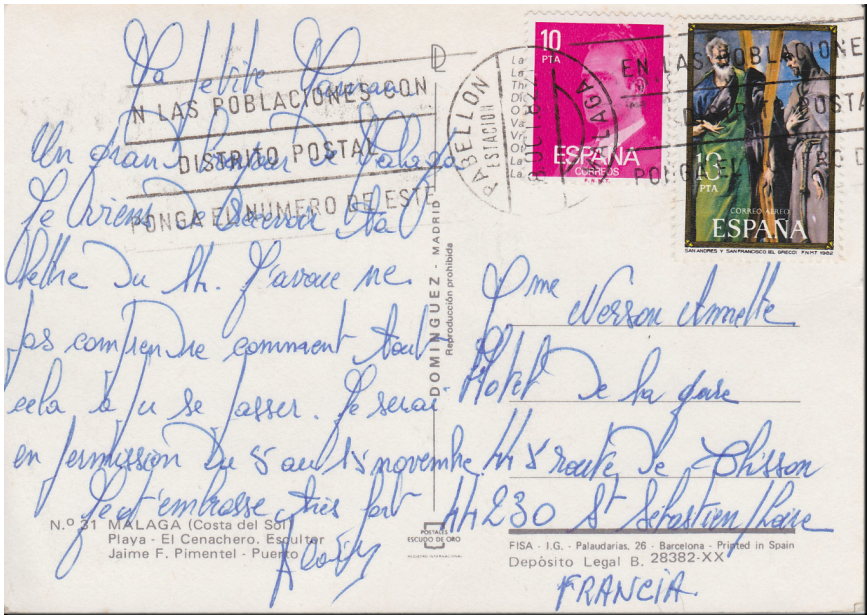 Ma petite
Un grand bonjour de Malaga
Je viens de recevoir ta
lettre du 14. J'avoue ne
pas comprendre comment tout
cela à pu se passer. Je serai
en permission du 5 au 15 novembre.
Je t'embrasse très fort
EN LAS POBLACIONES CON
DISTRITO POSTAL
PONGA EL NUMERO DE ESTE
PABELLON
ESTACION
MALAGA
10
PTA
ESPAÑA
CORREOS
F.N.M.T.
EN LAS POBLACIONE
DISTRITO POSTA
PONGA EL
13
PTA
CORREO AEREO
ESPAÑA
SAN ANDRES Y SAN FRANCISCO (EL GRECO) FNMT 1982
DOMINGUEZ - MADRID
Reproducción prohibida
Mme Nerson Annette
Hotel de la gare
44 route de Clisson
44230 St Sébastien/Loire
FRANCIA.
N.º 31 MALAGA (Costa del Sol)
Playa - El Cenachero. Escultor
Jaime F. Pimentel - Puerto
POSTALES
ESCUDO DE ORO
REGISTRO INTERNACIONAL
FISA - I.G. - Palaudarias, 26 - Barcelona - Printed in Spain
Depósito Legal B. 28382-XX